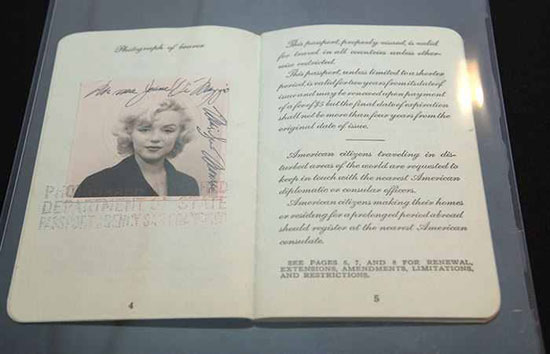 Photograph of bearer
DEPARTMENT OF STATE
PASSPORT AGENCY
4
This passport, properly visaed, is valid
for travel in all countries unless other-
wise restricted.
This passport, unless limited to a shorter
period, is valid for two years from its date of
issue and may be renewed upon payment
of a fee of $5 but the final date of expiration
shall not be more than four years from the
original date of issue.
American citizens traveling in dis-
turbed areas of the world are requested to
keep in touch with the nearest American
diplomatic or consular officers.
American citizens making their homes
or residing for a prolonged period abroad
should register at the nearest American
consulate.
SEE PAGES 6, 7, AND 8 FOR RENEWAL,
EXTENSIONS, AMENDMENTS, LIMITATIONS,
AND RESTRICTIONS.
5